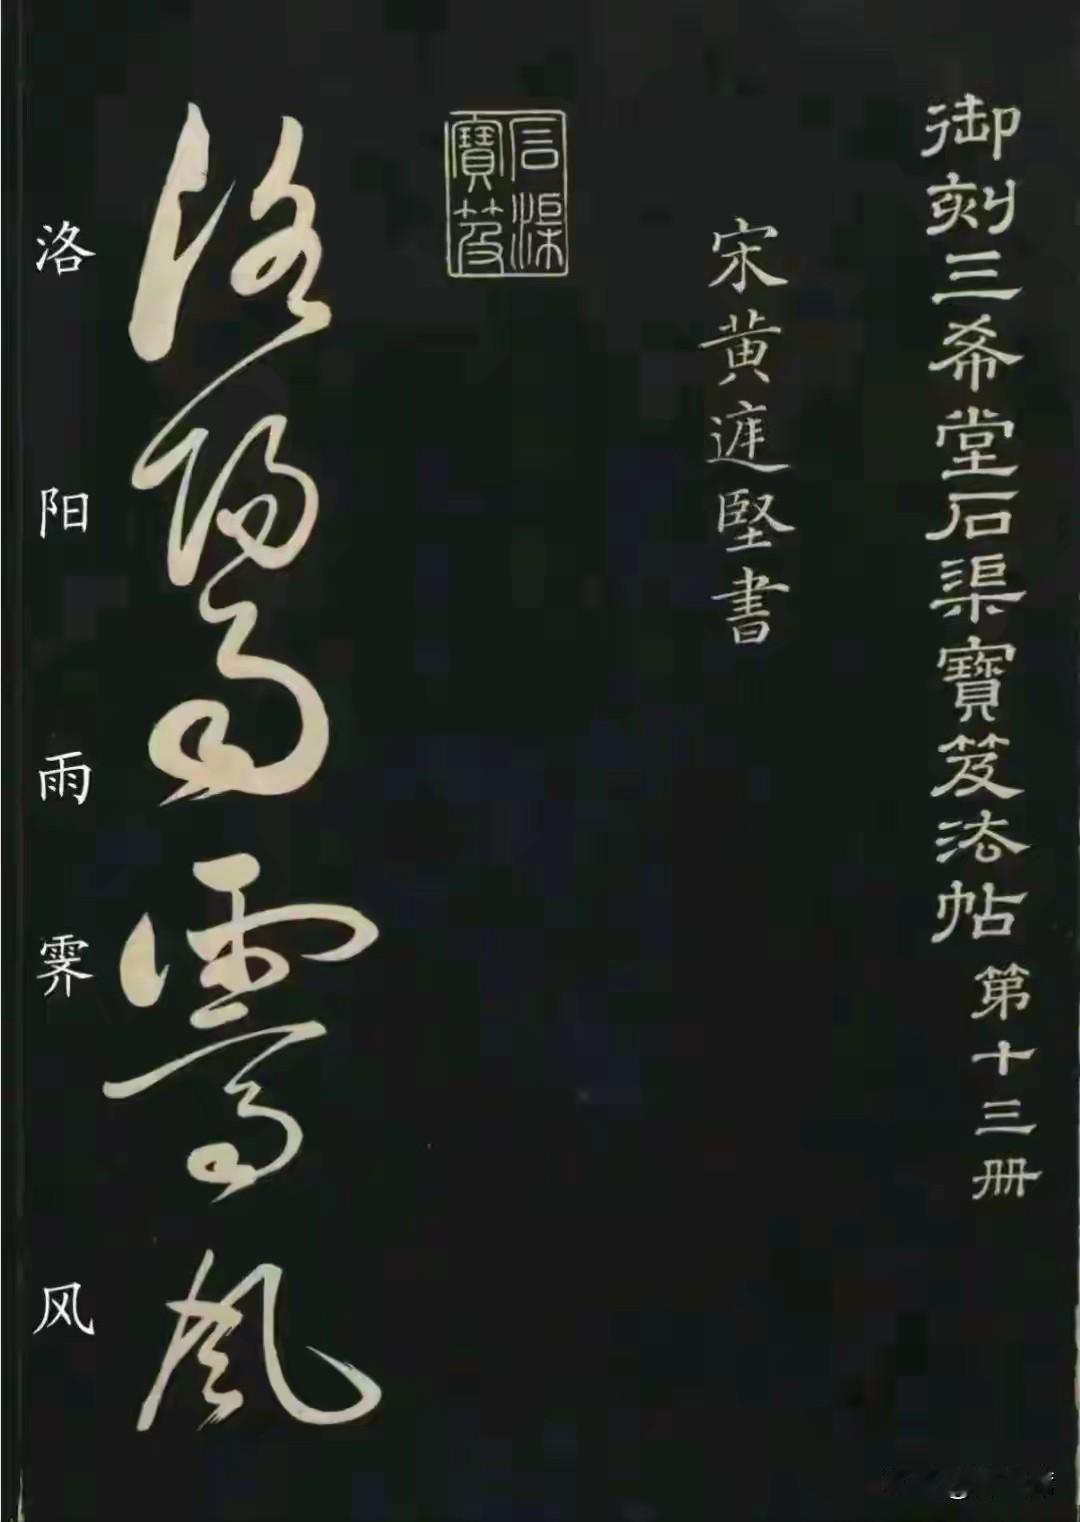 御刻三希堂石渠寶笈法帖 第十三册
宋黄庭堅書
石渠
寶笈
洛陽雨霽風
洛阳雨霁风